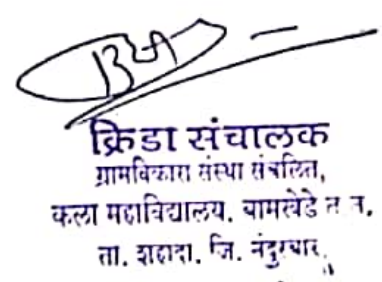 क्रिडा संचालक
ग्रामविकास संस्था संचलित,
कला महाविद्यालय. बामखेडे त. त.
ता. शहादा. जि. नंदुरबार.